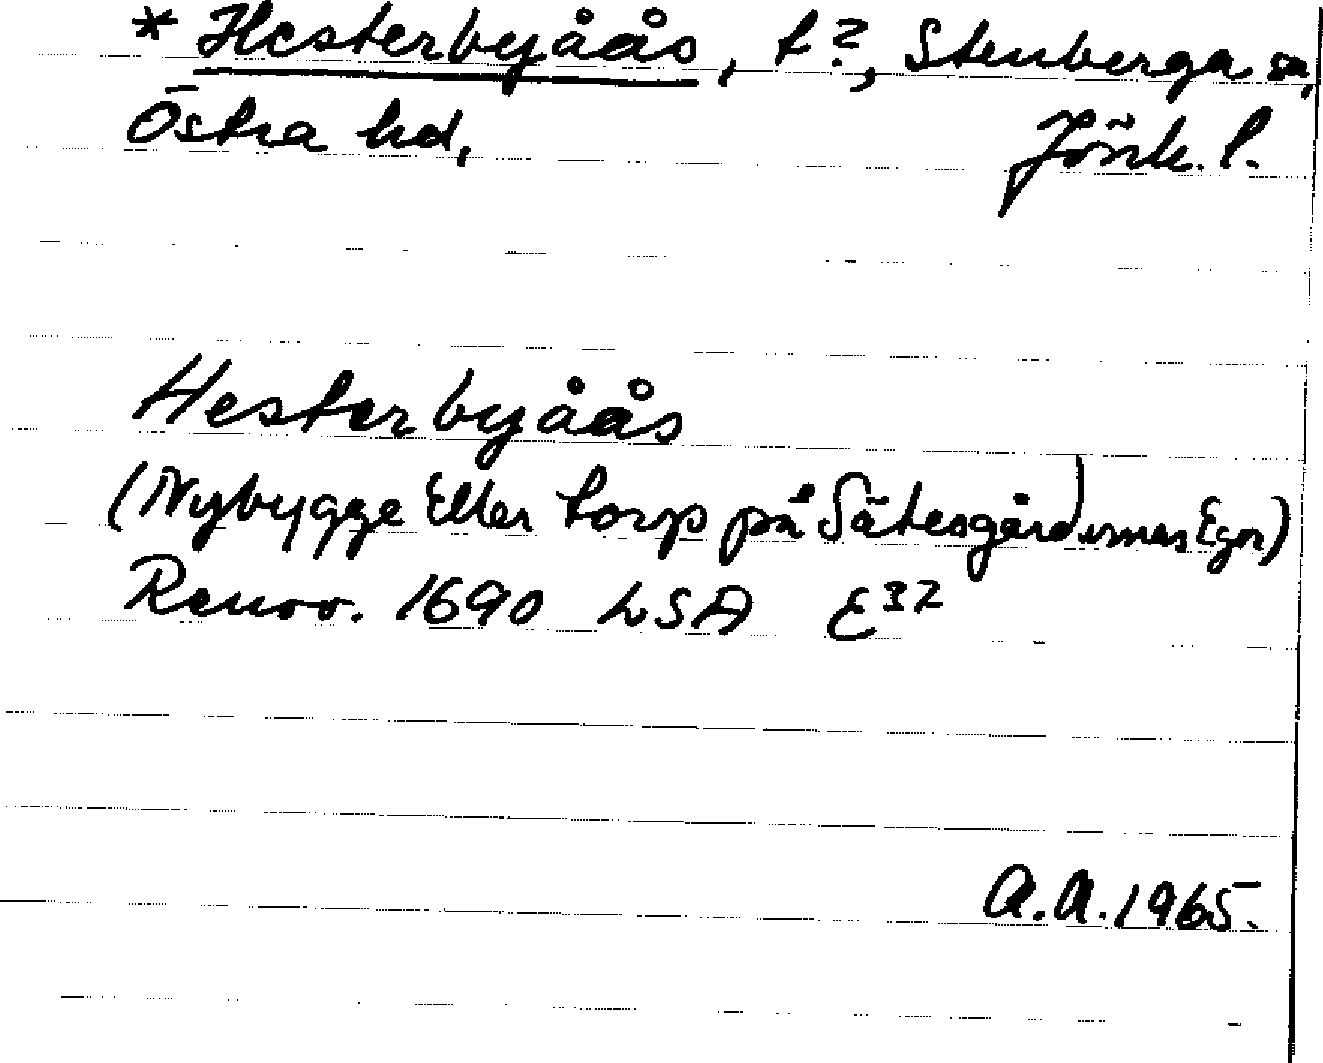 * Hesterbyåås, t?, Stenberga sn,
Östra hd, Jönk. l.
Hesterbyåås
(Nybygge Eller torp på Sätesgårdernas Egor)
Renov. 1690 LSA E32
A.A. 1965.